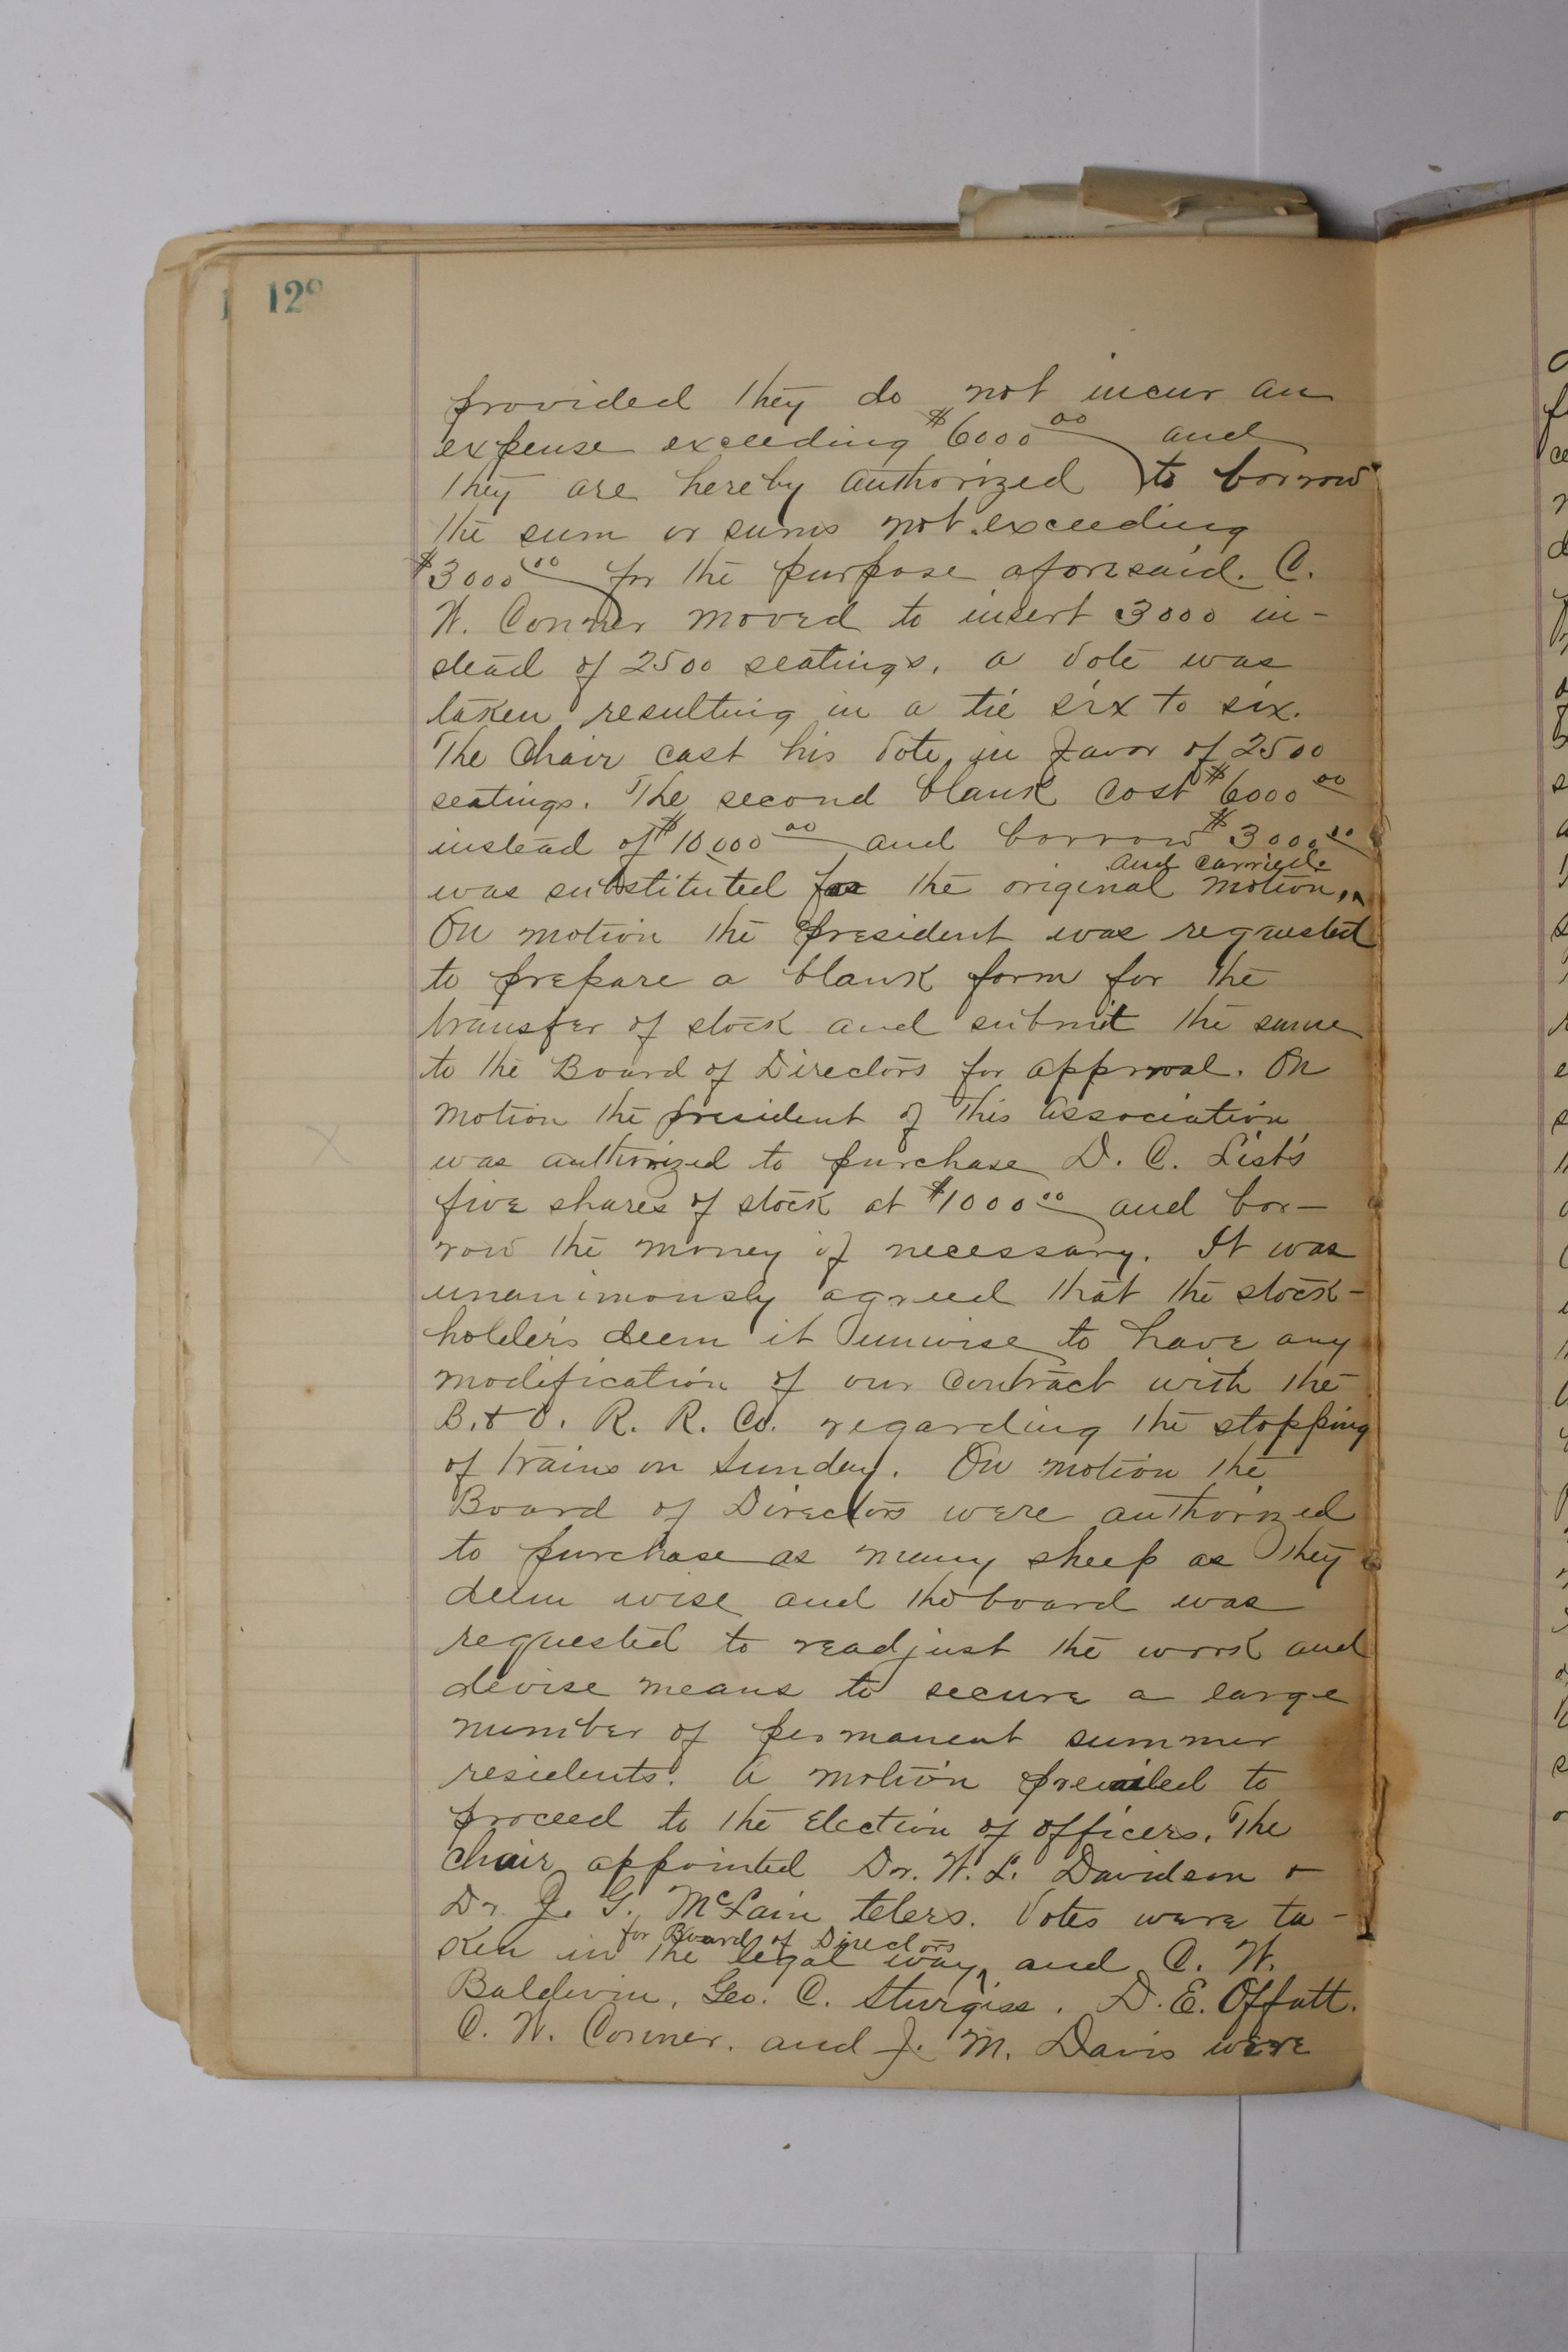 provided they do not incur an
expense exceeding $6000 00 and
they are hereby authorized to borrow
the sum or sums not exceeding
$3000 00 for the purpose aforesaid. C.
W. Conner moved to insert 3000 in-
stead of 2500 seatings. a vote was
taken resulting in a tie six to six.
The Chair cast his vote in favor of 2500
seatings. The second blank cost $6000 00
instead of $10,000 00 and borrow $3000 00
and carried.
was substituted for the original motion,
On motion the president was requested
to prepare a blank form for the
transfer of stock and submit the same
to the Board of Directors for approval. On
motion the president of this Association
was authorized to purchase D. C. List's
five shares of stock at $1000 00 and bor-
row the money if necessary. It was
unanimously agreed that the stock-
holders deem it unwise to have any
modification of our contract with the
B. & O. R. R. Co. regarding the stopping
of trains on Sunday. On motion the
Board of Directors were authorized
to purchase as many sheep as they
deem wise and the board was
requested to readjust the work and
devise means to secure a large
number of permanent summer
residents. A motion prevailed to
proceed to the election of officers. The
chair appointed Dr. W. L. Davidson &
Dr. J. G. McLain telers. Votes were ta-
for Board of Directors
ken in the legal way, and C. W.
Baldwin, Geo. C. Sturgiss. D. E. Offutt.
C. W. Conner. and J. M. Davis were